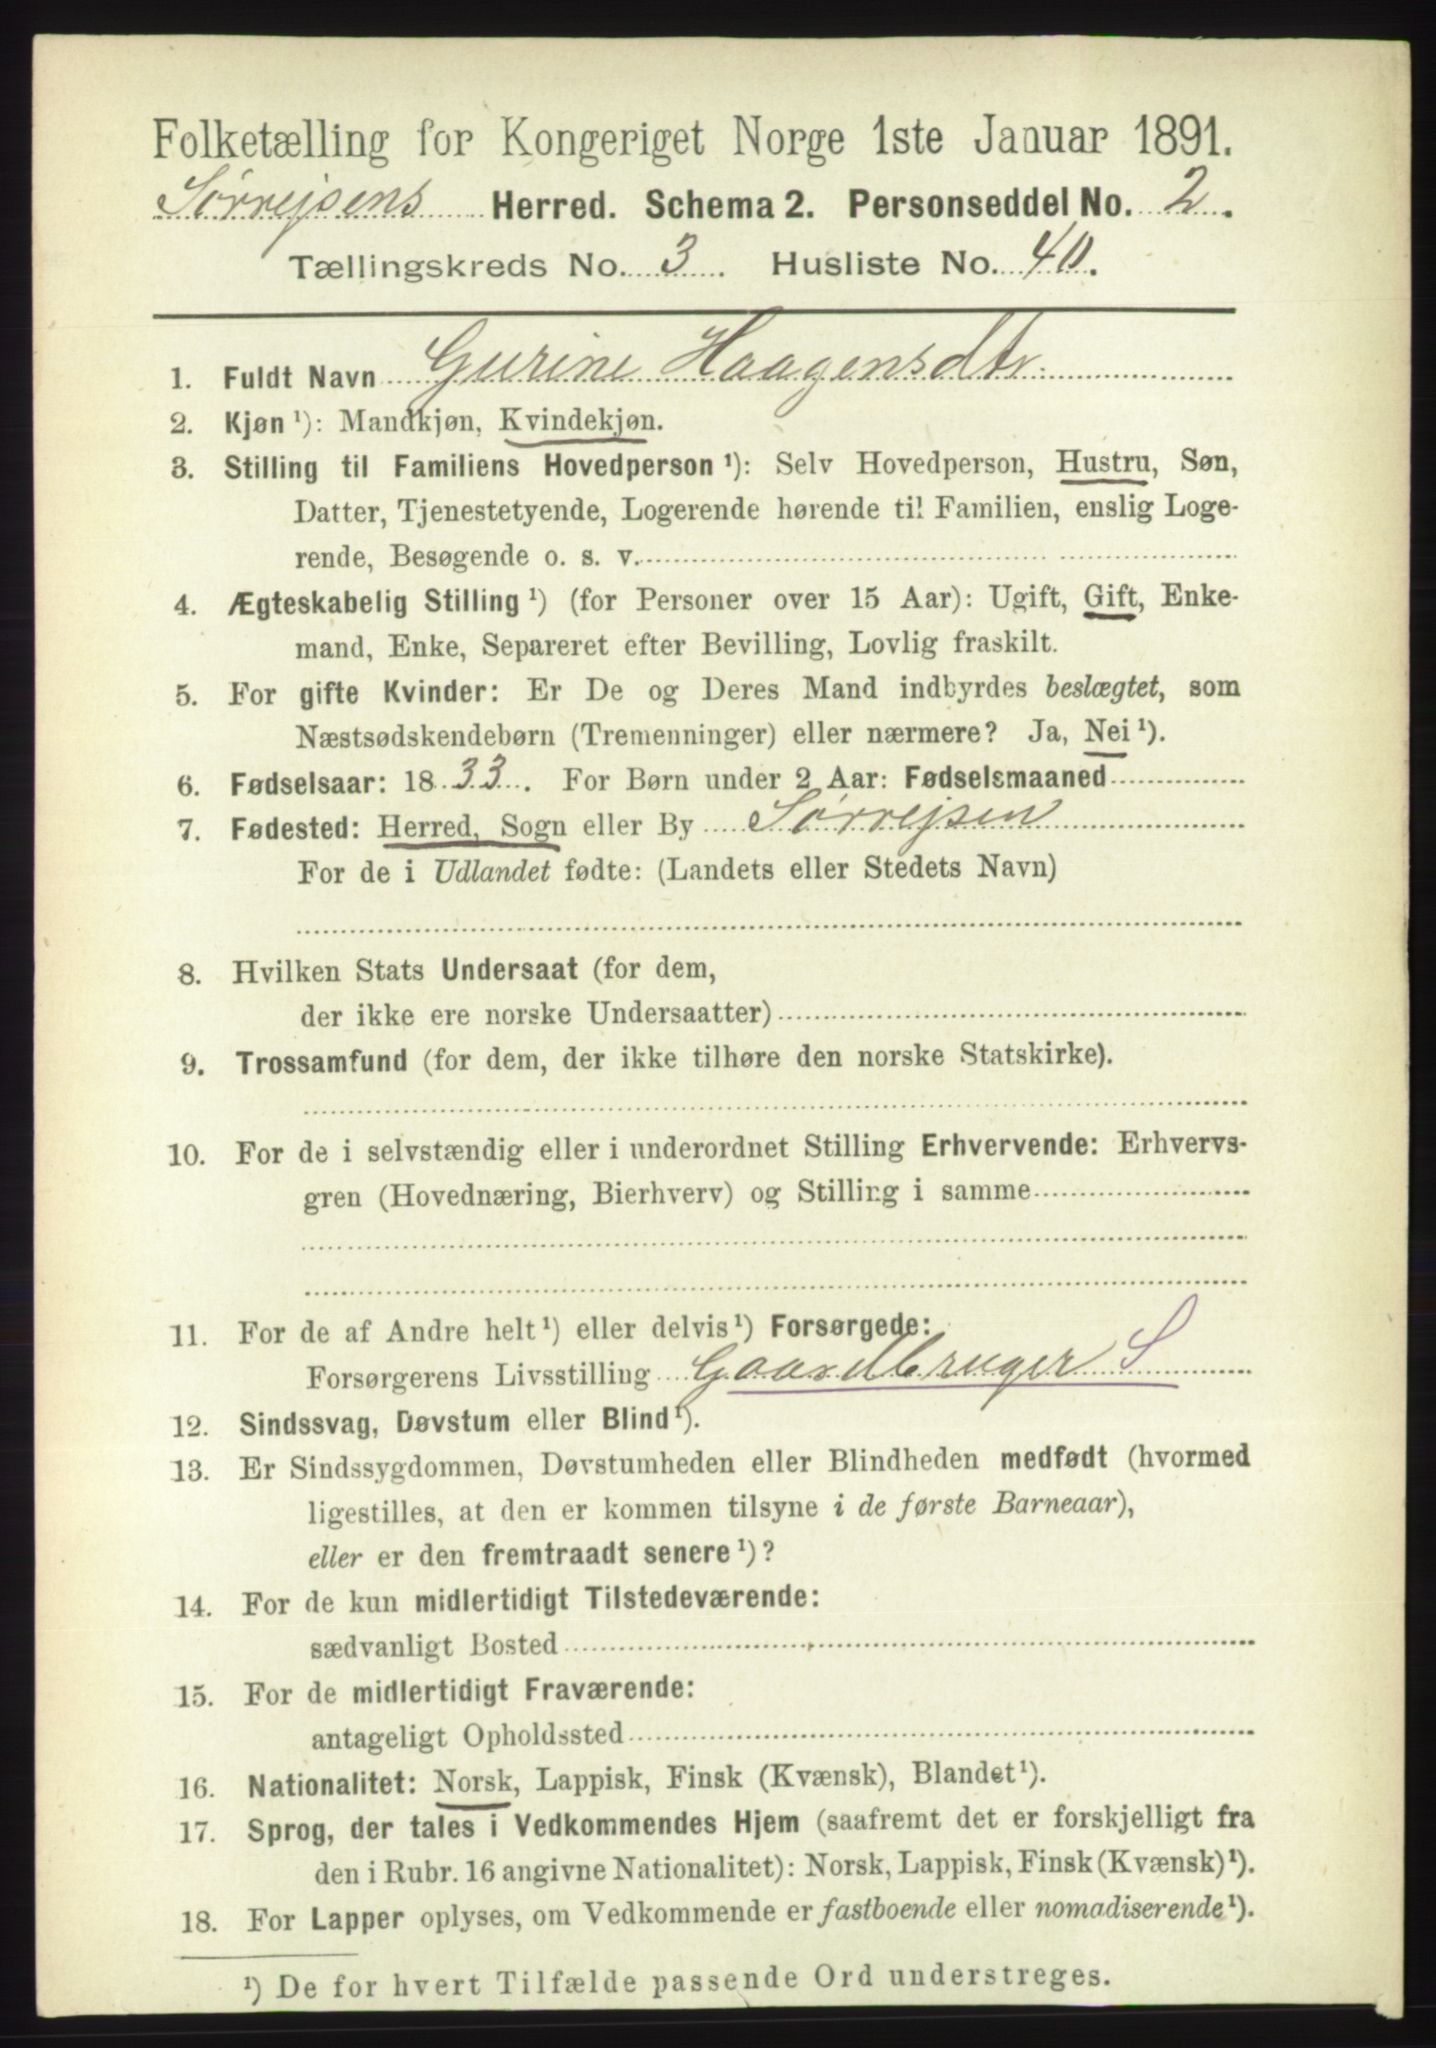 Folketælling for Kongeriget Norge 1ste Januar 1891.
Sørrejsens Herred. Schema 2. Personseddel No. 2.
Tællingskreds No. 3. Husliste No. 40.
1. Fuldt Navn Gurine Haagensdtr.
2. Kjøn ¹): Mandkjøn, Kvindekjøn.
3. Stilling til Familiens Hovedperson ¹): Selv Hovedperson, Hustru, Søn,
Datter, Tjenestetyende, Logerende hørende til Familien, enslig Loge-
rende, Besøgende o. s. v.
4. Ægteskabelig Stilling ¹) (for Personer over 15 Aar): Ugift, Gift, Enke-
mand, Enke, Separeret efter Bevilling, Lovlig fraskilt.
5. For gifte Kvinder: Er De og Deres Mand indbyrdes beslægtet, som
Næstsødskendebørn (Tremenninger) eller nærmere? Ja, Nei ¹).
6. Fødselsaar: 1833. For Børn under 2 Aar: Fødselsmaaned
7. Fødested: Herred, Sogn eller By Sørrejsen
For de i Udlandet fødte: (Landets eller Stedets Navn)
8. Hvilken Stats Undersaat (for dem,
der ikke ere norske Undersaatter)
9. Trossamfund (for dem, der ikke tilhøre den norske Statskirke).
10. For de i selvstændig eller i underordnet Stilling Erhvervende: Erhvervs-
gren (Hovednæring, Bierhverv) og Stilling i samme
11. For de af Andre helt ¹) eller delvis ¹) Forsørgede:
Forsørgerens Livsstilling Gaardbruger S
12. Sindssvag, Døvstum eller Blind ¹).
13. Er Sindssygdommen, Døvstumheden eller Blindheden medfødt (hvormed
ligestilles, at den er kommen tilsyne i de første Barneaar),
eller er den fremtraadt senere ¹)?
14. For de kun midlertidigt Tilstedeværende:
sædvanligt Bosted
15. For de midlertidigt Fraværende:
antageligt Opholdssted
16. Nationalitet: Norsk, Lappisk, Finsk (Kvænsk), Blandet ¹).
17. Sprog, der tales i Vedkommendes Hjem (saafremt det er forskjelligt fra
den i Rubr. 16 angivne Nationalitet): Norsk, Lappisk, Finsk (Kvænsk) ¹).
18. For Lapper oplyses, om Vedkommende er fastboende eller nomadiserende ¹).
¹) De for hvert Tilfælde passende Ord understreges.